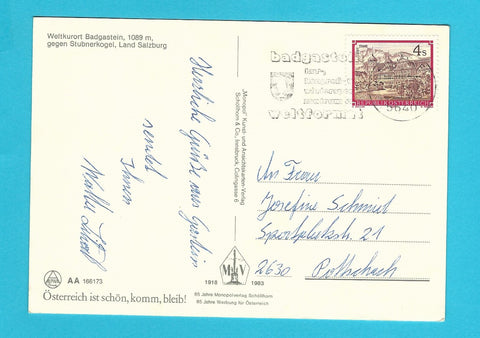 Weltkurort Badgastein, 1089 m,
gegen Stubnerkogel, Land Salzburg
Herzliche Grüße aus Gastein
sendet
Ihnen
"Monopol" Kunst- und Ansichtskarten-Verlag
Schöllhorn & Co., Innsbruck, Colingasse 6
badgastein
weltform
4 S
REPUBLIK ÖSTERREICH
5640
An Frau
Josefine Schmid
Sportplatzstr. 21
2630 Pottschach
AA 166173
Österreich ist schön, komm, bleib!
1918 MV 1983
65 Jahre Monopolverlag Schöllhorn
65 Jahre Werbung für Österreich